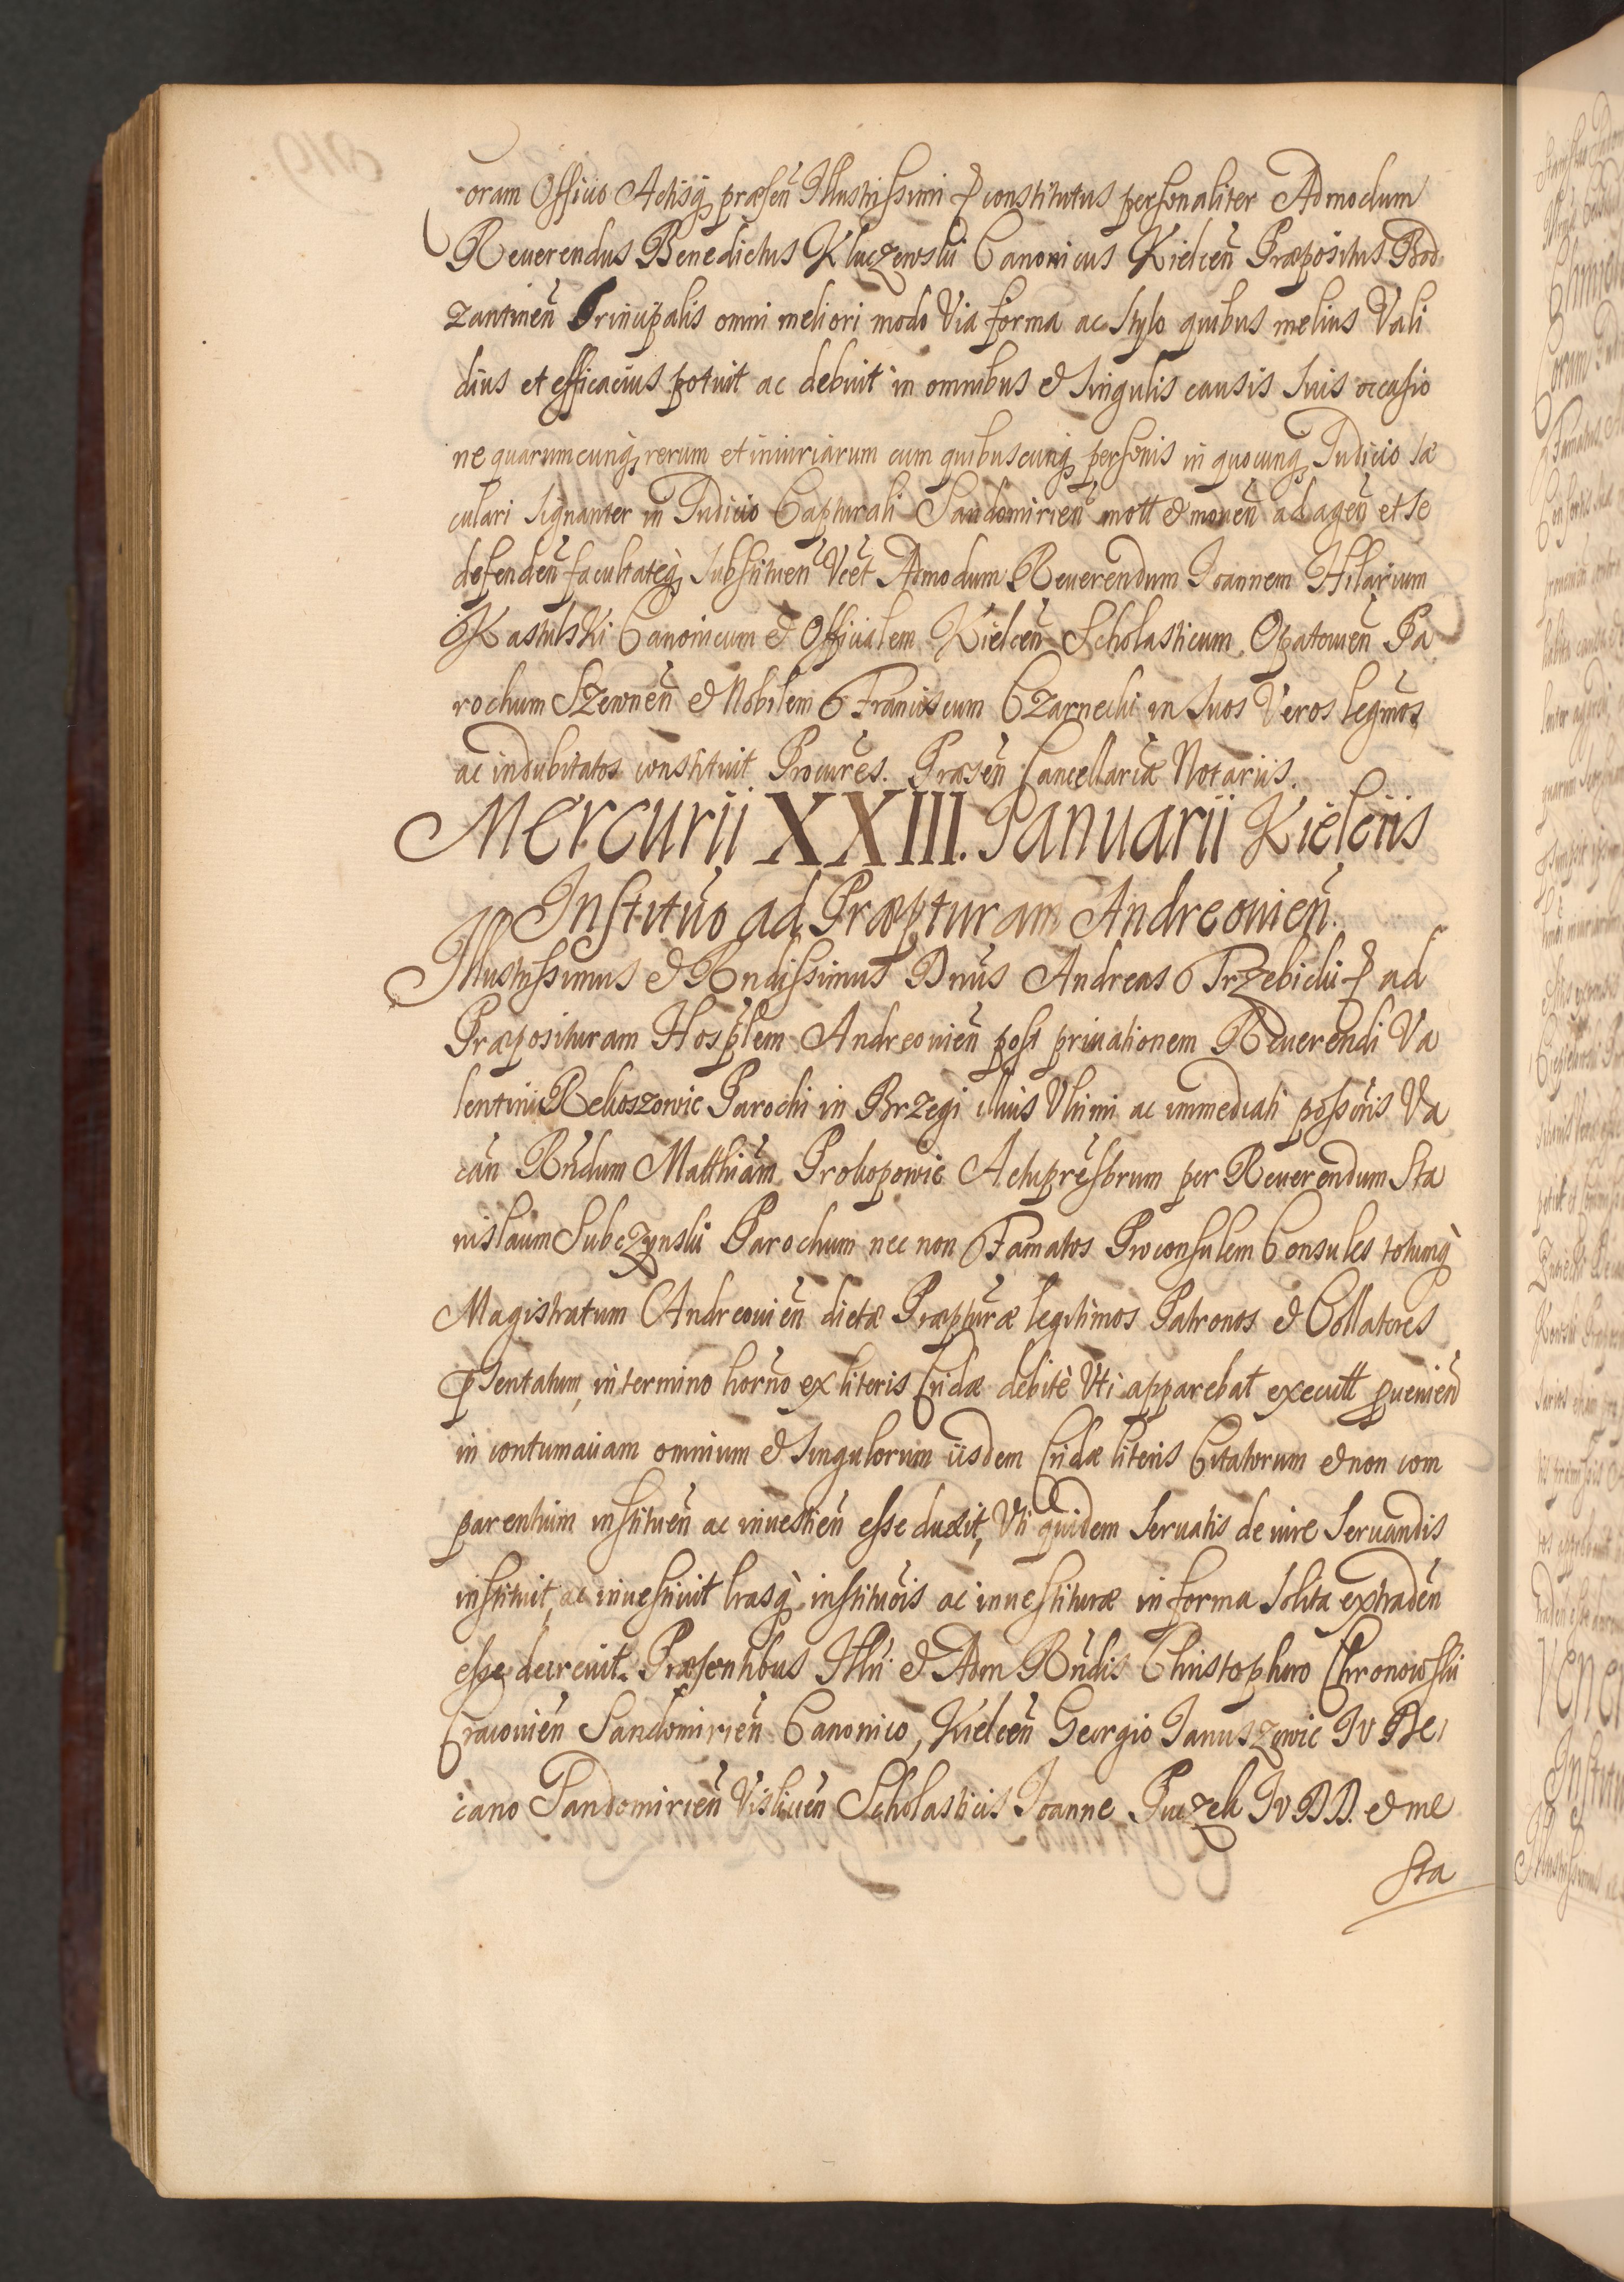 Coram Officio Actisq́ȝ præsen̄ Illustrissimi ꝑ constitutus personaliter Admodum
Reuerendus Benedictus Kluczewski Canonicus Kielcen̄ Præpositus Bod-
zantinen̄ Principalis omni meliori modo Via forma ac Stylo quibus melius Vali
dius et efficacius potuit ac debuit in omnibus & singulis causis suis occasio
ne quarumcunq́ȝ rerum et iniuriarum cum quibuscunq́ȝ personis in quocunq́ȝ Iudicio sæ
culari signanter in Iudicio Capturali Sandomirien̄ mott & mouen̄ ad agen̄ et se
defenden̄ facultateq́ȝ substituen̄ Vcet Admodum Reuerendum Ioannem Hilarium
Kastulski Canonicum & Officialem Kielcen̄ Scholasticum Opatouien̄ Pa
rochum Szewnen̄ & Nobilem Franciscum Czarnecki in suos Veros legm̄os
ac indubitatos constituit Procur̄es. Præsen̄ Cancellariæ Notariis.
Mercurii XXIII. Ianuarii Kielciis
Institūo ad Præptur̄am Andreouien̄.
Illustrissimus & Rndissimus Dn̄us Andreas Trzebicki ꝑ ad
Præposituram Hosp̄lem Andreouien̄ post priuationem Reuerendi Va
lentini Relioszowic Parochi in Brzegi illius Vltimi ac immediati possoris Va
can̄ Rn̄dum Matthiam Prokopowic Actupresbrum per Reuerendum Sta
nislaum Subczynski Parochum nec non Famatos Proconsulem Consules totumq́
Magistratum Andreouien̄ dictæ Præpturæ legitimos Patronos & Collatores
p̄sentatum, in termino horno ex literis Cridæ debitè Vti apparebat executt ꝓuenien̄
in contumaciam omnium & singulorum iisdem Cridæ literis Citatorum & non com
parentium instituen̄ ac inuestien̄ esse duxit, Vti quidem seruatis de iure seruandis
instituit, ac inuestiuit lrasq́ institūois ac inuestituræ in forma solita extraden̄
esse decreuit. Præsentibus Illn̄. & Adm Rn̄dis Christophoro Chronowski
Cracouien̄ Sandomirien̄ Canonico, Kielcen̄ Georgio Ianuszowic Iv D De,
cano Sandomirien̄ Vislicien̄ Scholasticis Ioanne Puczek Iv D D. & me
Sta